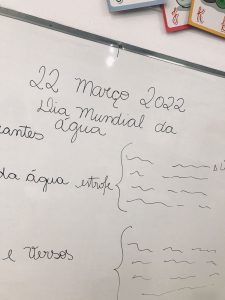 22 Março 2022
Dia Mundial da
água
cantes
da água estrofe
e versos